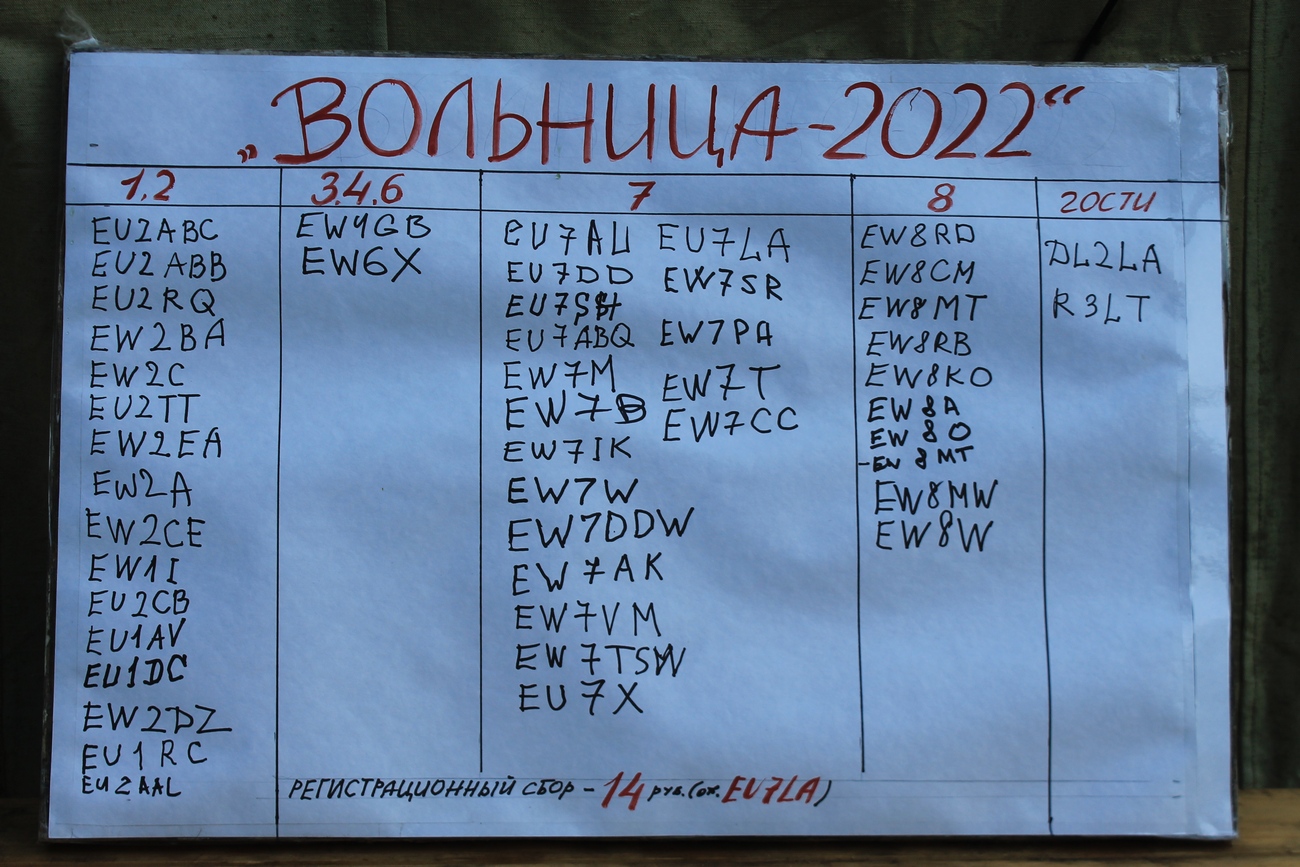 „ВОЛЬНИЦА-2022“
1,2
EU2ABC
EU2ABB
EU2RQ
EW2BA
EW2C
EU2TT
EW2EA
EW2A
EW2CE
EW1I
EU2CB
EU1AV
EU1DC
EW2DZ
EU1RC
EU2AAL
3.4.6
EW4GB
EW6X
7
EU7AU
EU7DD
EU7ABQ
EW7M
EW7B
EW7IK
EW7W
EW7DDW
EW7AK
EW7VM
EW7TSW
EU7X
EU7LA
EW7SR
EW7PA
EW7T
EW7CC
8
EW8RD
EW8CM
EW8MT
EW8RB
EW8KO
EW8A
EW8O
-EW8MT
EW8MW
EW8W
ГОСТИ
DL2LA
R3LT
РЕГИСТРАЦИОННЫЙ СБОР - 14 руб. (ох. EU7LA)